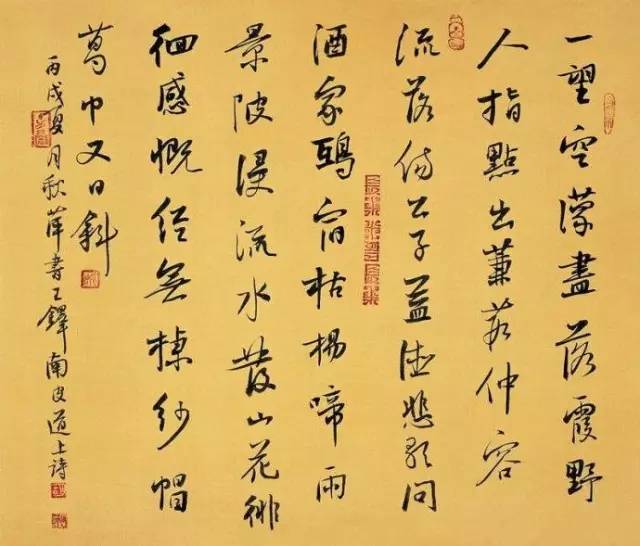 一望空濛盡落霞野
人指點出蒹葭仲容
流落傷公子孟德悲歌問
酒家鵶宿枯楊啼雨
景陂漫流水發山花徘
徊感慨經無棣紗帽
葛巾又日斜
丙戌夏月秋萍書王鐸南皮道上詩